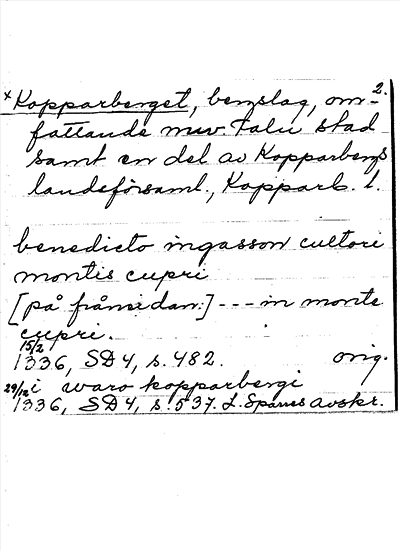 2.
× Kopparberget, bergslag, om-
fattande nuv. Falu stad
samt en del av Kopparbergs
landsförsaml., Kopparb. l.
benedicto ingasson cultori
montis cupri
[på frånsidan:] --- in monte
cupri.
15/2
1336, SD 4, s. 482. orig.
29/12 i waro kopparbergi
1336, SD 4, s. 537. L. Sparres avskr.